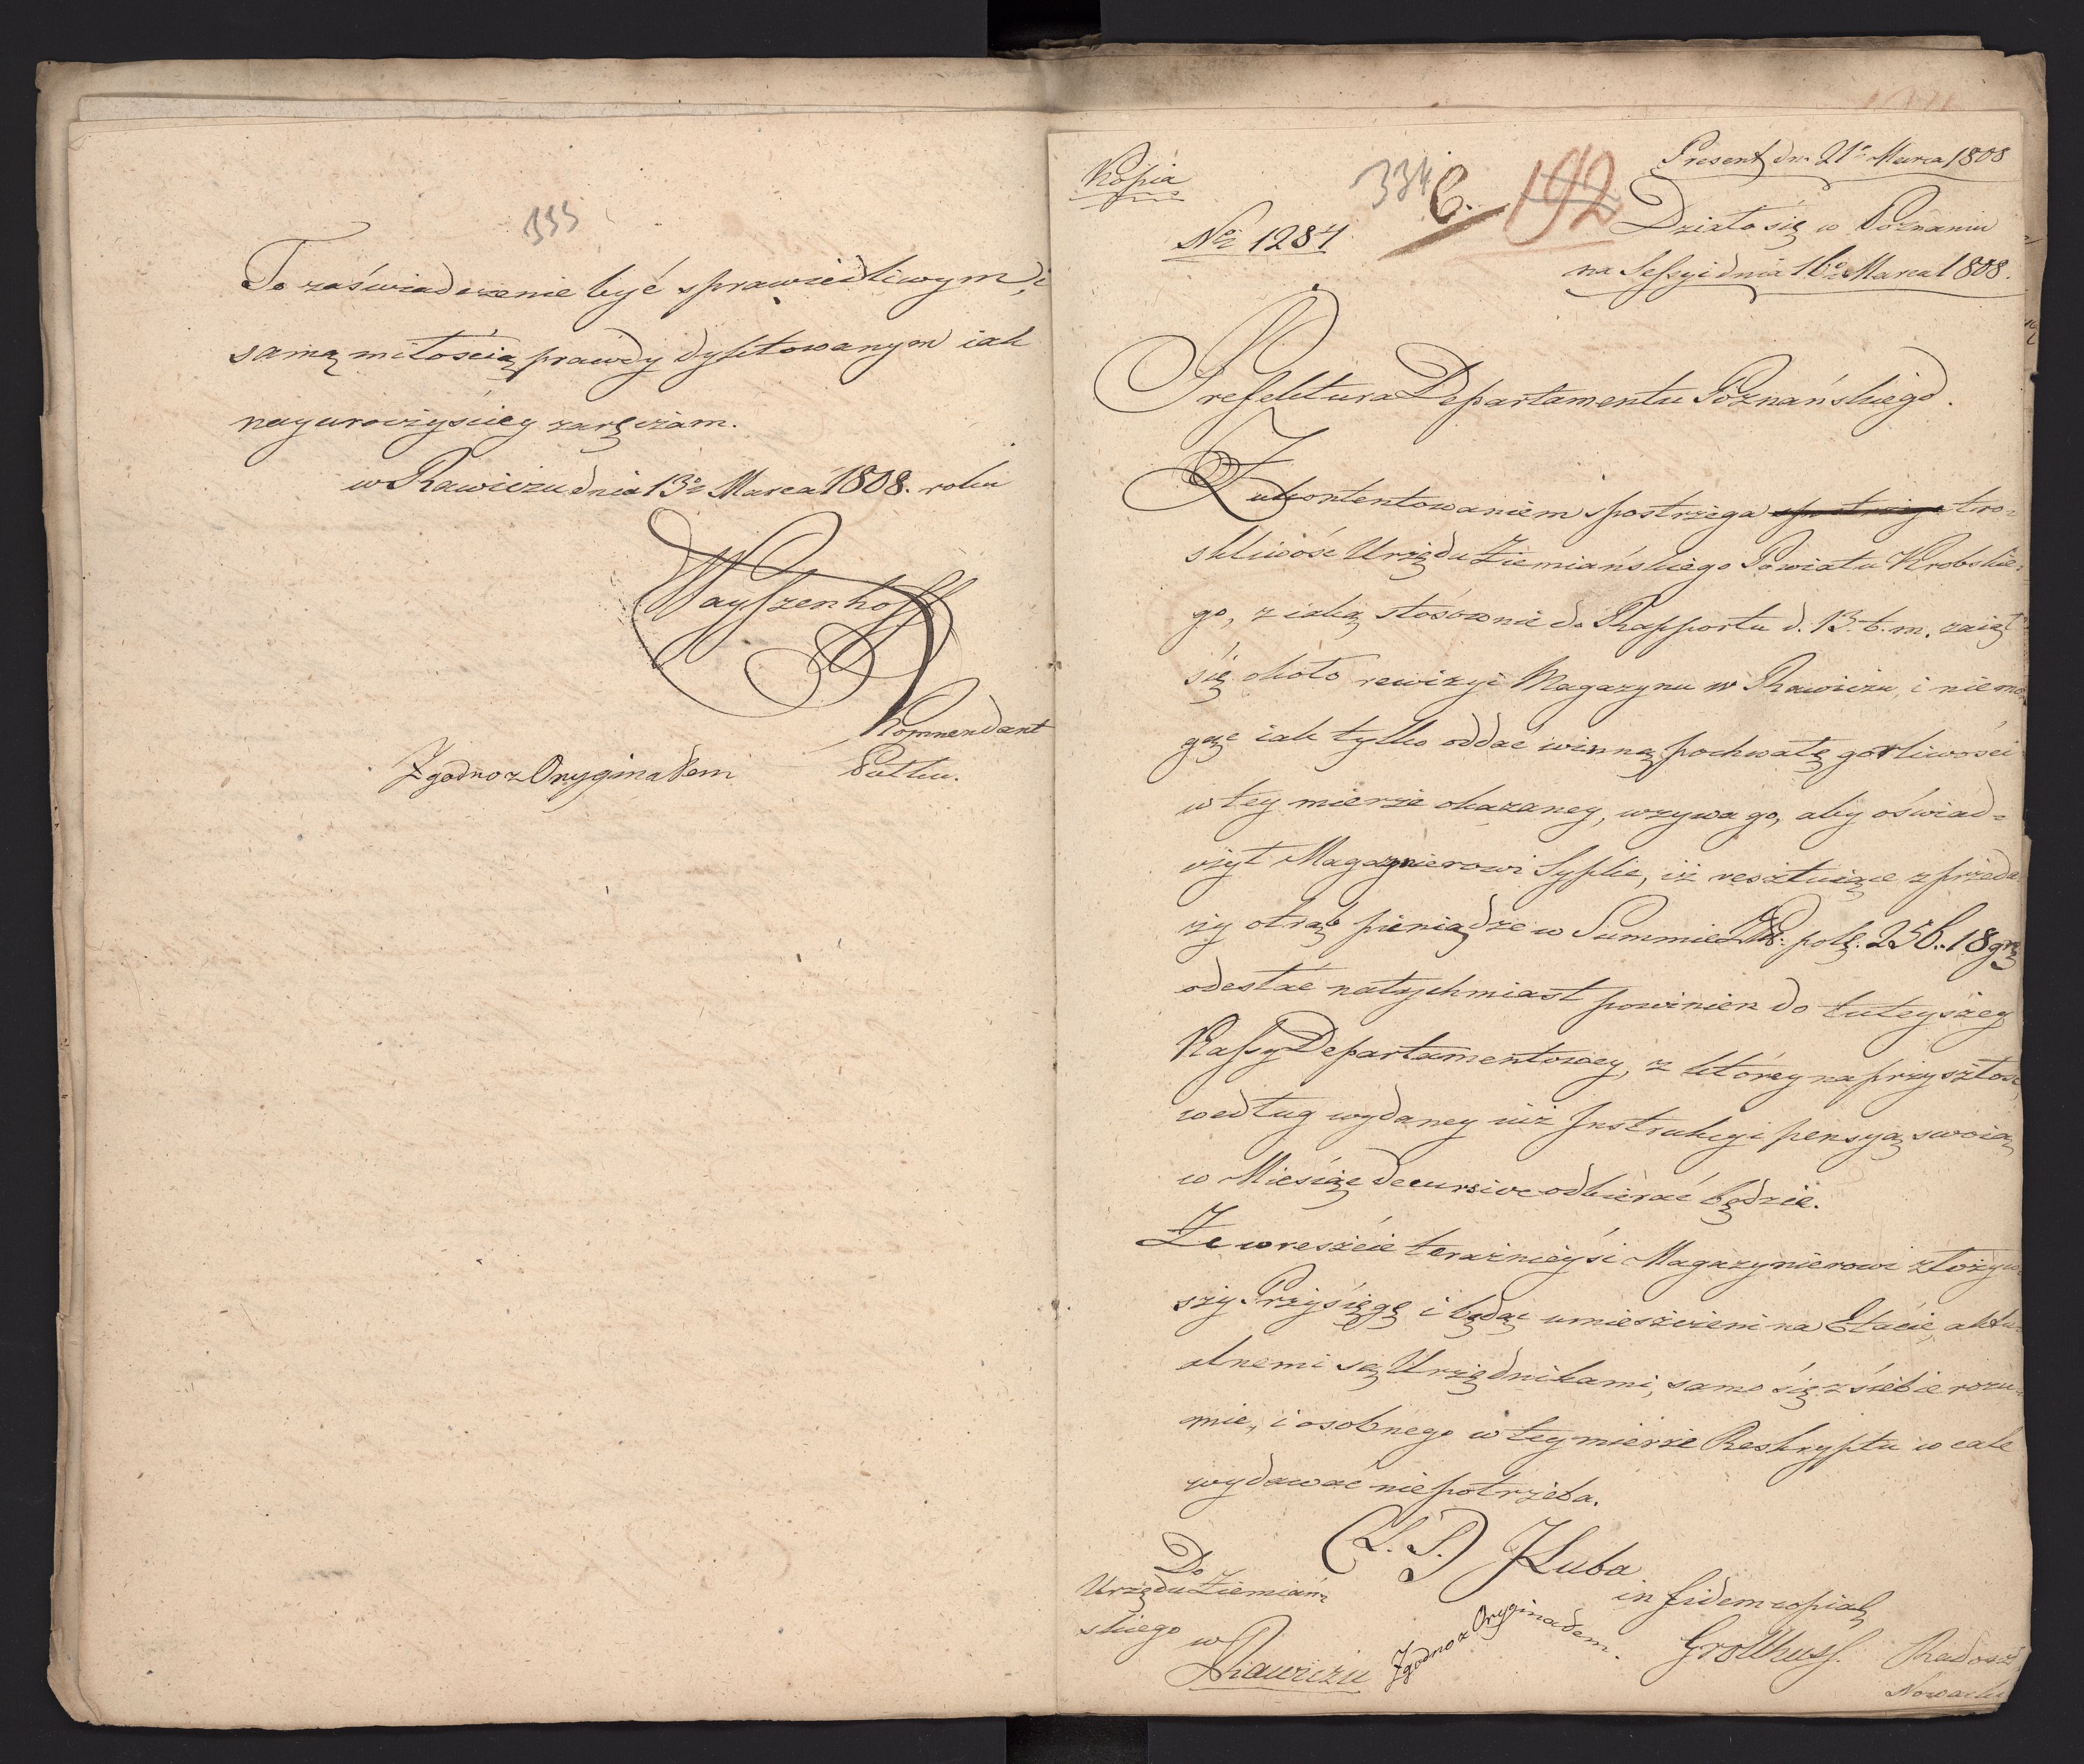 333
To zaświadczenie być sprawiedliwym, i
samą miłością prawdy dyktowanym iak
nayuroczyściey zaręczam.
w Rawiczu dnia 13º Marca 1808. roku
Wayszenhoff
Kommendant
Pułku.
Zgodno z Oryginałem
Kopia
334 C. 192
Present. dn. 21º Marca 1808
Nrº 1284
Działo się w Poznaniu
na Sessyi dnia 16º Marca 1808.
Prefektura Departamentu Poznańskiego.
Z ukontentowaniem spostrzega tro-
skliwość Urzędu Ziemiańskiego Powiatu Krobskie-
go, z iaką stósownie do Rapportu d. 13. b. m. zaiął
się około rewizyi Magazynu w Rawiczu, i niemo
gąc iak tylko oddać winną pochwałę gorliwości
w tey mierze okazaney, wzywa go, aby oświad-
czył Magazynierowi Sypke, iż resztuiące z przeda
ży otrąb pieniądze w Summie Zł: pol. 256. 18 gr
odesłać natychmiast powinien do tuteyszey
Kassy Departamentowey, z którey naprzyszłość
według wydaney iuż Instrukcyi pensyą swoią
w Miesiąc decursive odbierać będzie.
Że wreszcie teraźnieysi Magazynierowi złożyw
szy Przysięgę i będąc umieszczeni na Etacie, aktu-
alnemi są Urzędnikami, samo się z siebie rozu-
mie, i osobnego w tey mierze Reskryptu wcale
wydawać niepotrzeba.
(L. S.) JŁuba
Do
Urzędu Ziemiań-
skiego
w
Rawiczu
in fidem copiae
Zgodno z Oryginałem.
Grotthuss.
Nowacki